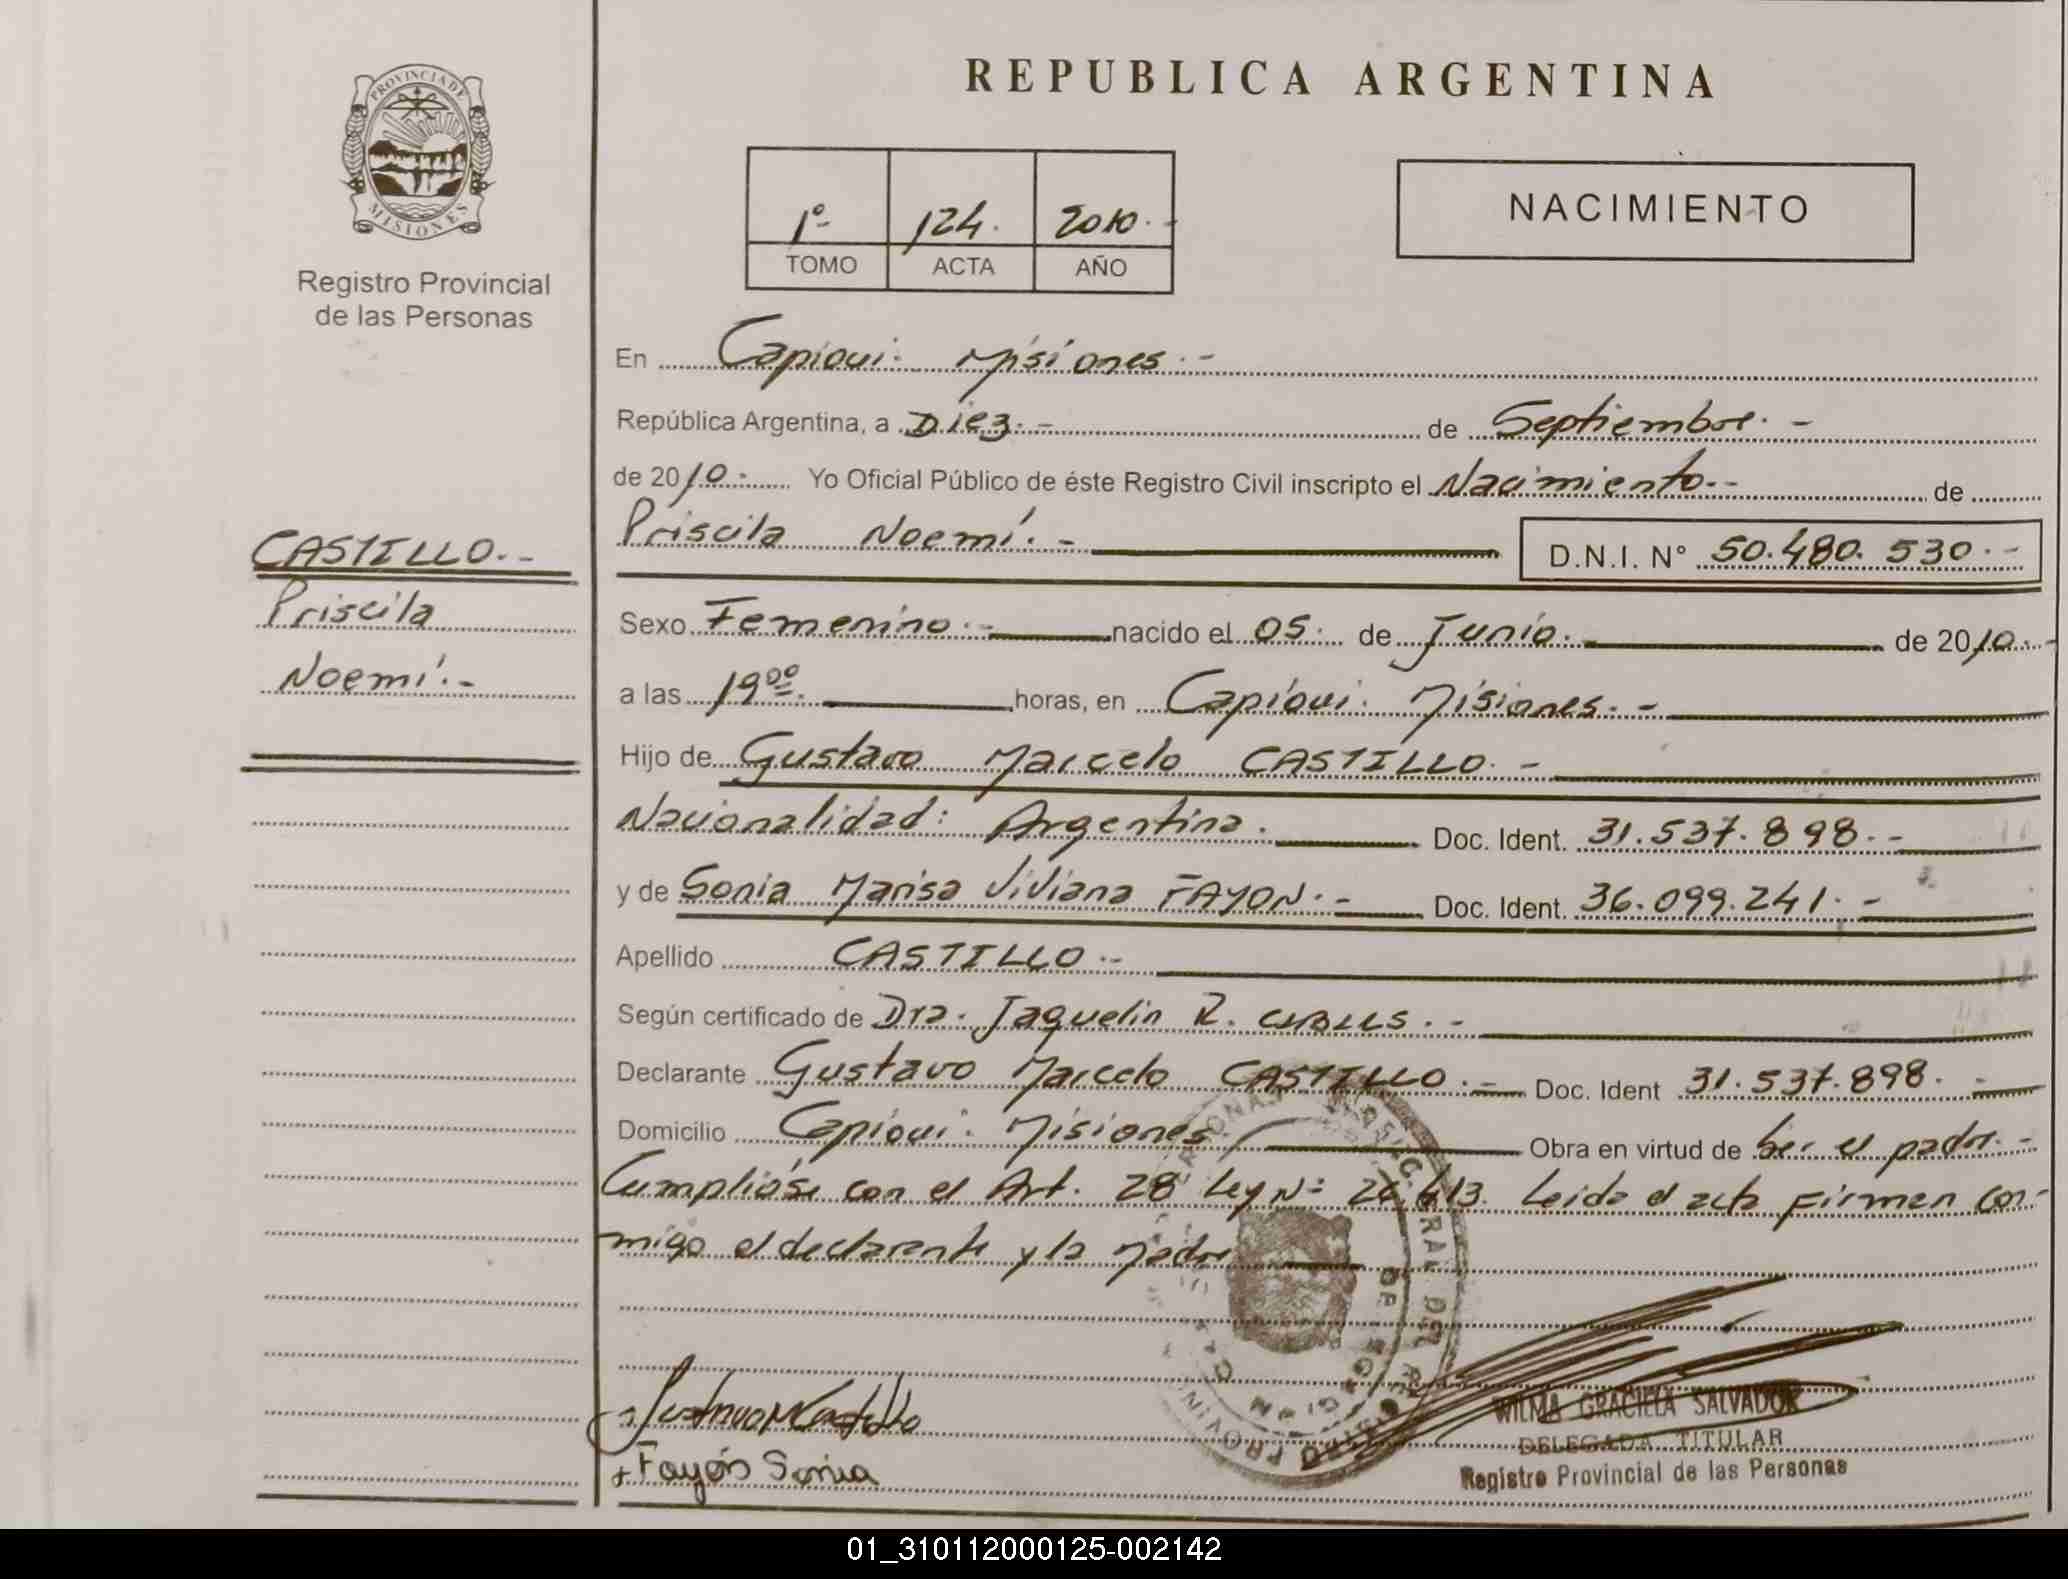 PROVINCIA DE
MISIONES
Registro Provincial
de las Personas
CASTILLO.-
Priscila
Noemí.-
REPUBLICA ARGENTINA
1º 124. 2010.-
TOMO ACTA AÑO
NACIMIENTO
En Capiovi. Misiones.-
República Argentina, a Diez.- de Septiembre.-
de 2010.- Yo Oficial Público de éste Registro Civil inscripto el Nacimiento.- de
Priscila Noemí.- D.N.I. N° 50.480.530.-
Sexo Femenino.- nacido el 05. de Junio. de 2010.-
a las 19⁰⁰. horas, en Capiovi. Misiones.-
Hijo de Gustavo Marcelo CASTILLO.-
Nacionalidad: Argentina. Doc. Ident. 31.537.898.-
y de Sonia Marisa Viviana FAYON.- Doc. Ident. 36.099.241.-
Apellido CASTILLO.-
Según certificado de Dra. Jaquelin R.
Declarante Gustavo Marcelo CASTILLO.- Doc. Ident 31.537.898.-
Domicilio Capiovi. Misiones. Obra en virtud de ser el padre.-
Cumplióse con el Art. 28 Ley Nº 26.413. Leida el acta Firman con-
migo el declarante y la Madre
Fayón Sonia
WILMA GRACIELA SALVADOR
DELEGADA TITULAR
Registro Provincial de las Personas
01_310112000125-002142